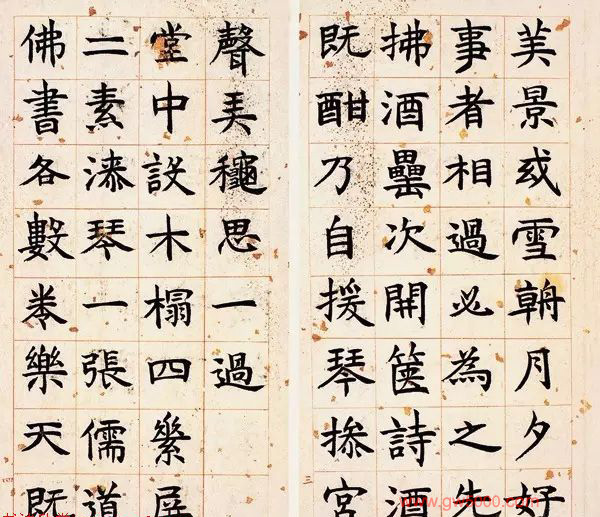 美景或雪朝月夕好
事者相過必為之先
拂酒罍次開篋詩酒
既酣乃自援琴操宮
聲弄龝思一過
堂中設木榻四素屏
二素漆琴一張儒道
佛書各數卷樂天既
三